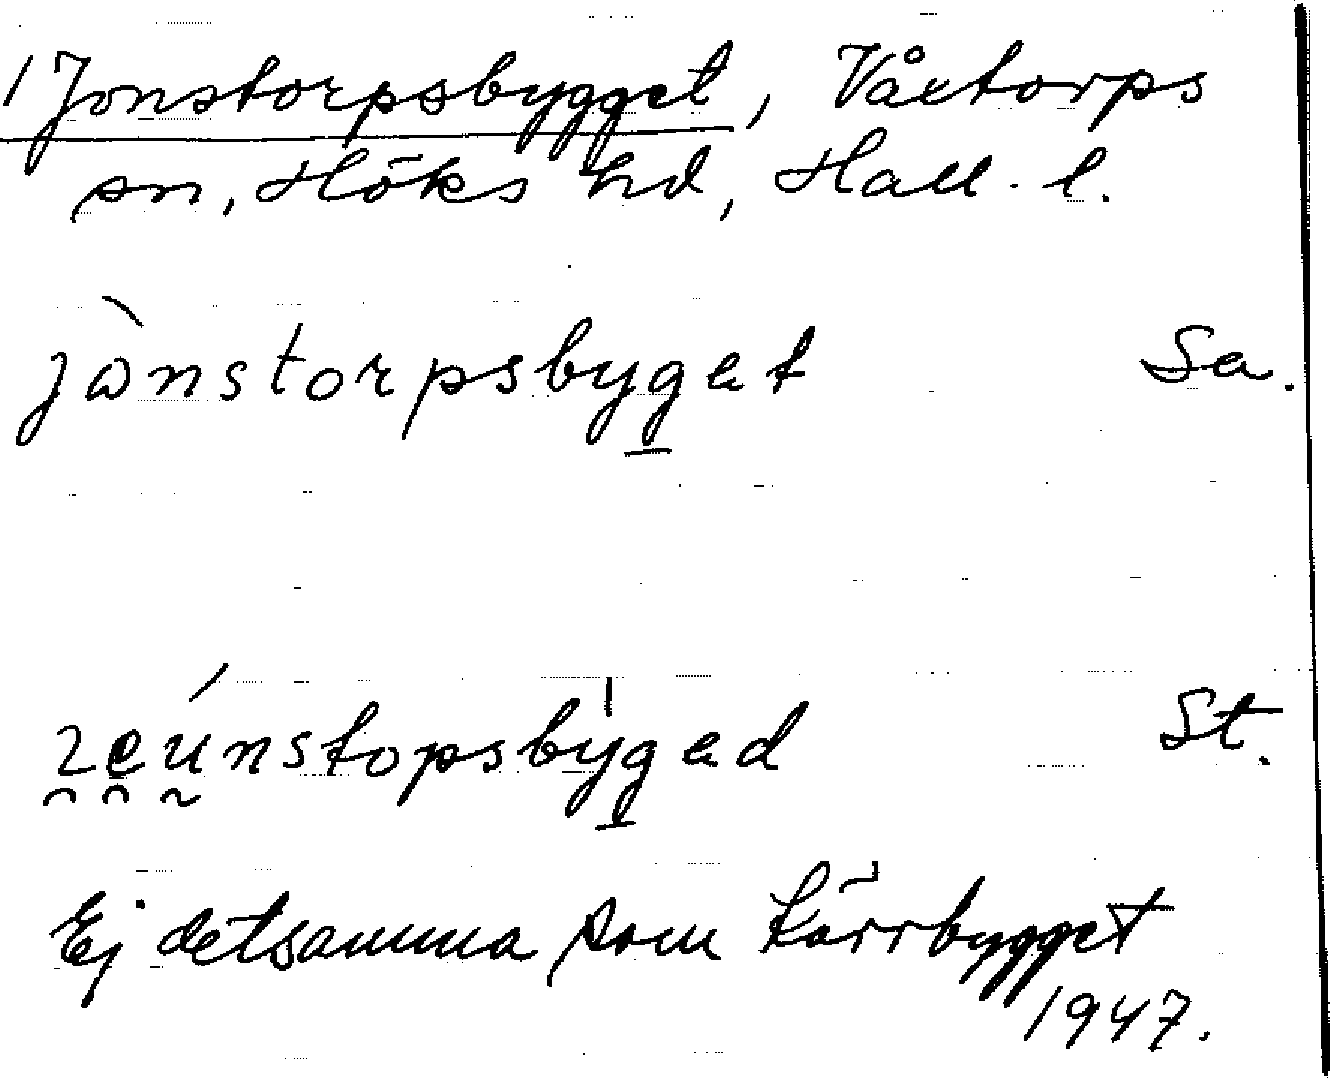 1 Jonstorpsbygget, Våxtorps
sn, Höks hd, Hall. l.
jònstorpsbyget Sa.
St.
Ej detsamma som Kärrbygget
1947.